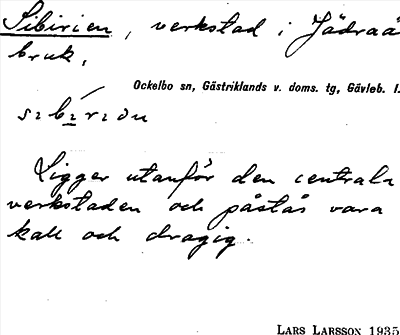 Sibirien, verkstad i Jädraå
bruk,
Ockelbo sn, Gästriklands v. doms. tg, Gävleb. l.
Ligger utanför den centrala
verkstaden och påstås vara
kall och dragig.
LARS LARSSON 1935